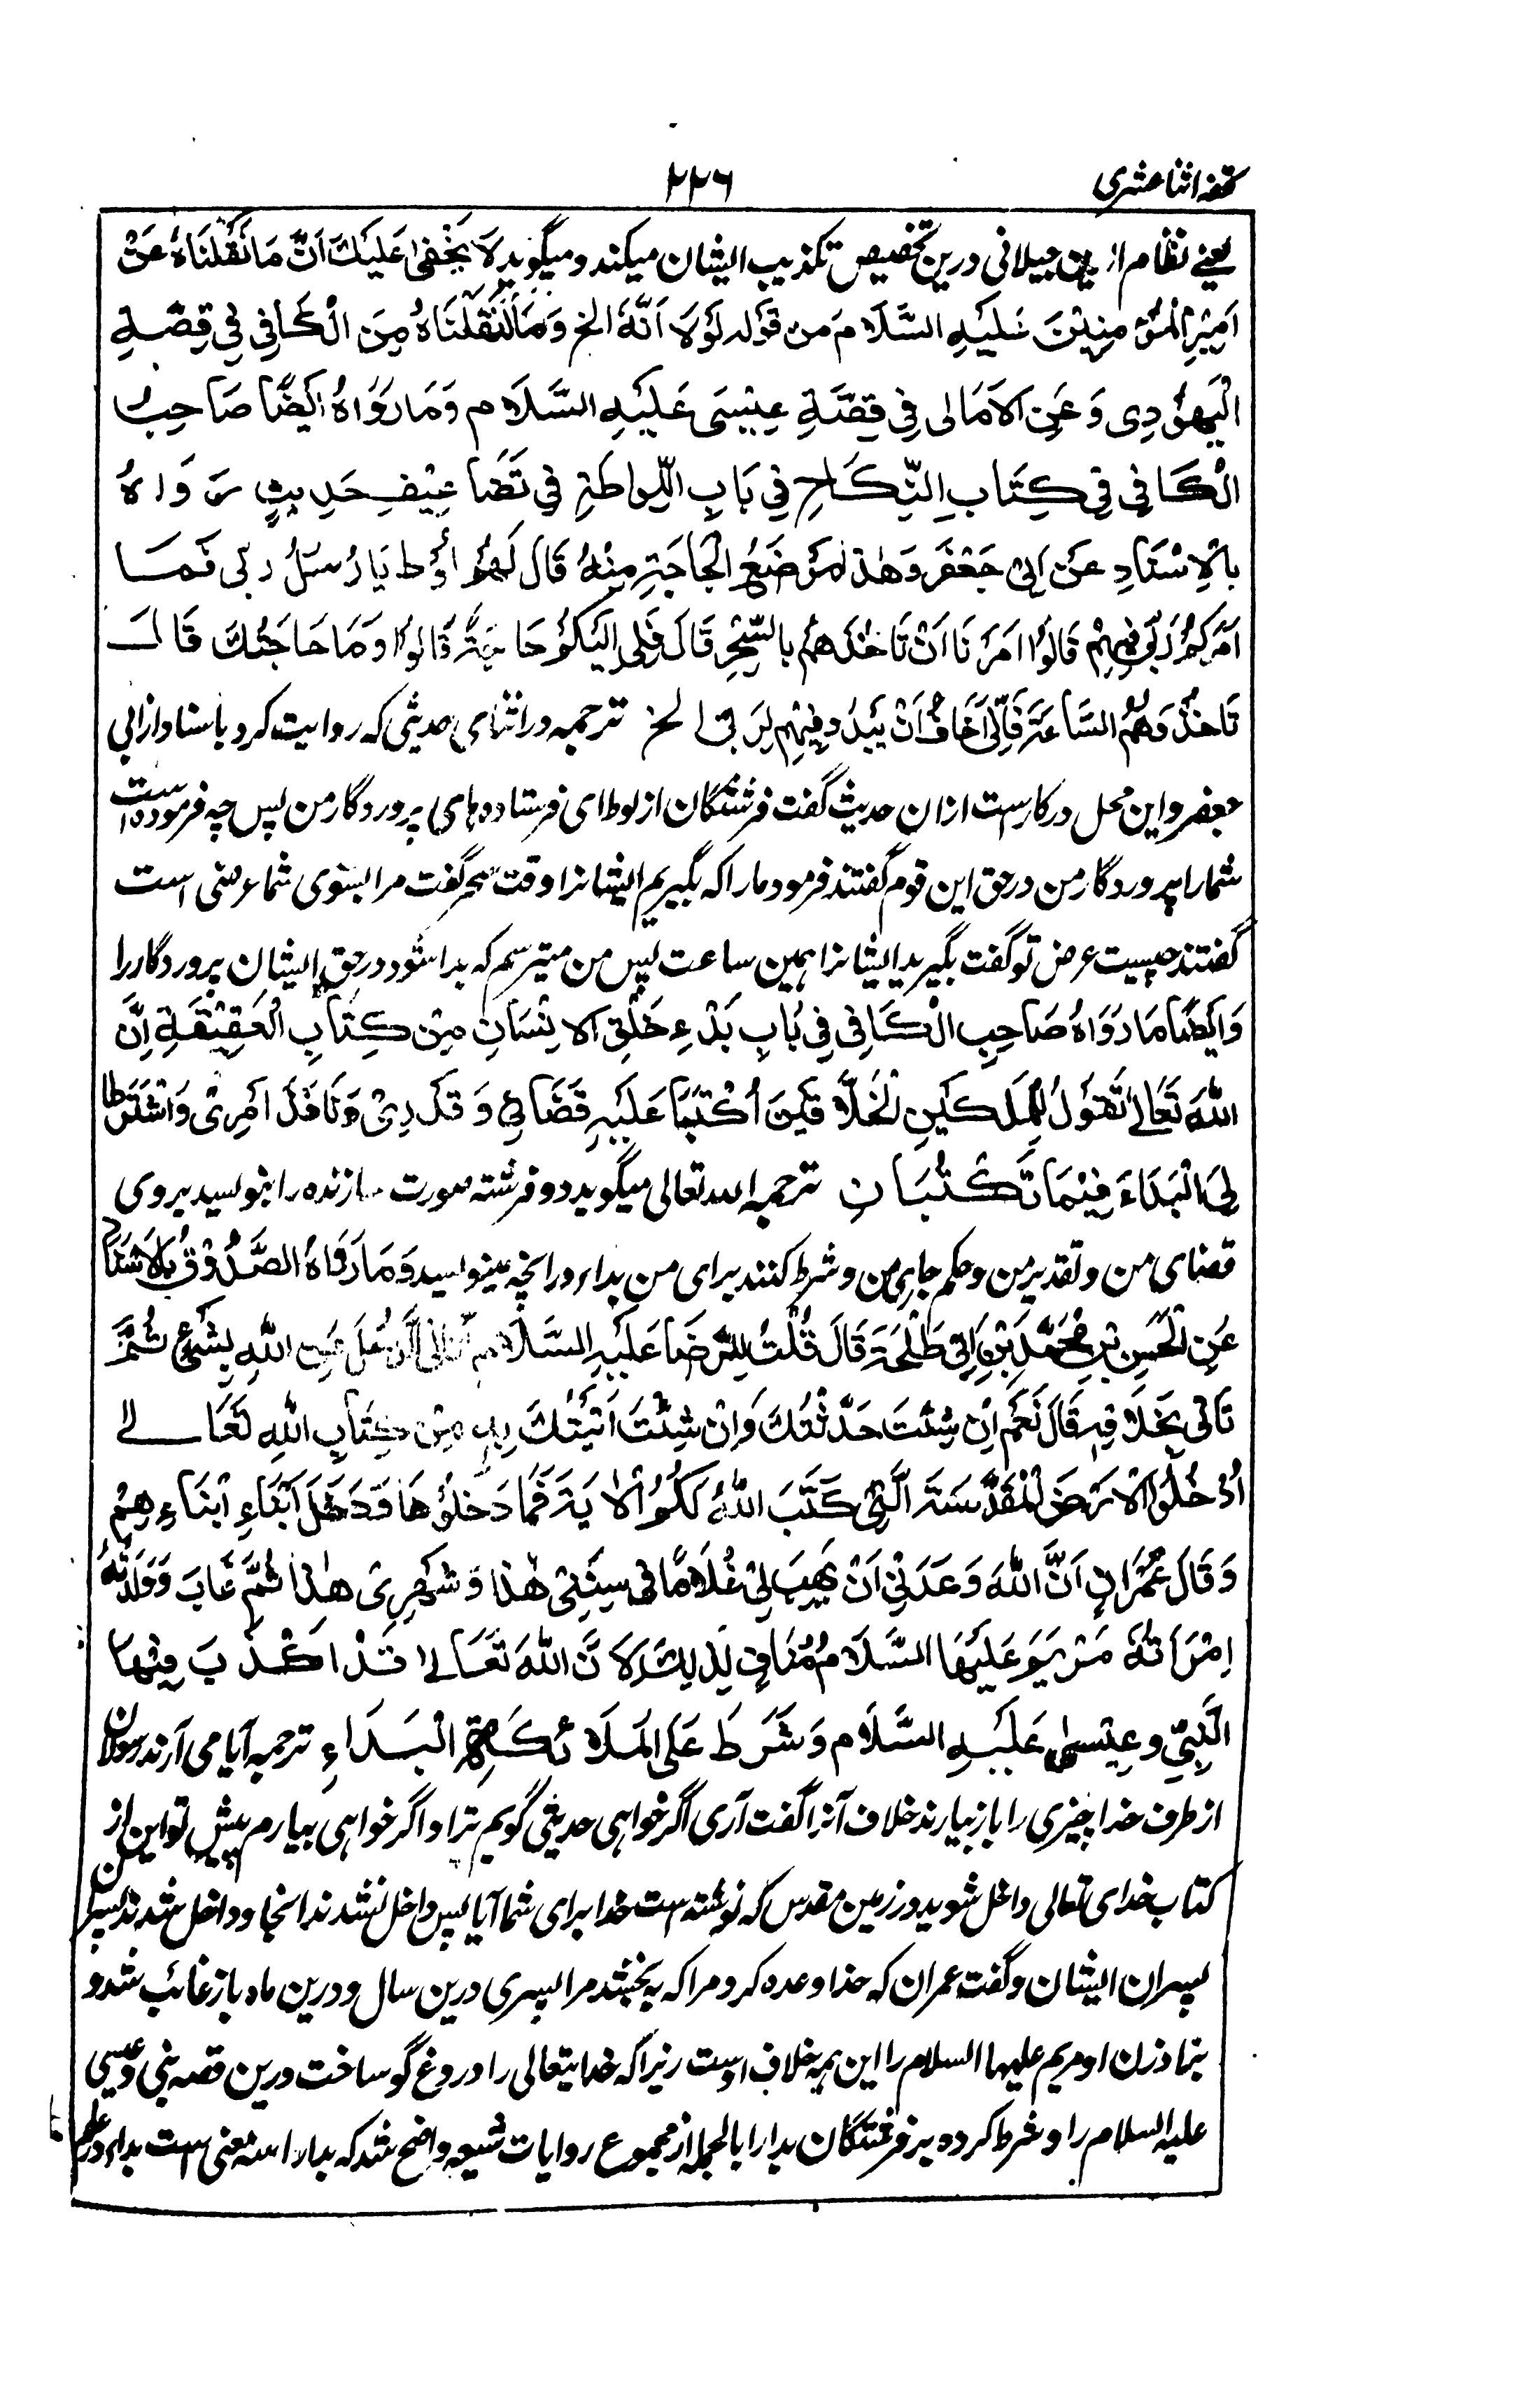 تحفه اثنا عشری
۲۲۶
یعنے نظام الدین جیلانی درین تخصیص تکذیب ایشان میکند و میگوید لَا یَخْفیٰ عَلَیْكَ اَنَّ مَا نَقَلْنَاهُ عَنْ
اَمِیْرِ الْمُؤْمِنِیْنَ عَلَیْهِ السَّلَامَ من قوله لَوْلَا اَنَّهٗ الخ وَمَا نَقَلْنَاهُ مِنَ الْکَافِی فِی قِصَّةِ
الْیَهُوْدِی وَعَنِ الْاَمَالی فِی قِصَّةِ عِیْسَی عَلَیْهِ السَّلَام وَمَا رَوَاهُ اَیْضًا صَاحِبُ
الْکَافِی فِی کِتَابِ النِّکَاحِ فِی بَابِ اللِّوَاطَةِ فِی تَضَاعِیْفِ حَدِیثٍ رَوَاهُ
بِالْاِسْنَادِ عَنْ اَبِی جَعْفَر وَهٰذَا مَوْضَعُ الْحَاجَةِ مِنْهُ قَالَ لَهُمْ لُوط یَا رُسُلُ ربّی فَمَا
اَمَرَکُمْ رَبّی فِیْهِمْ قَالُوْا اَمَرَنَا اَنْ نَاخُذَهُمْ بِالسَّحَرِ قَالَ فَلِی اِلَیْکُمْ حَاجَةٌ قَالُوْا وَمَا حَاجَتُكَ قَالَ
تَاخُذُوْهُمُ السَّاعَةَ فَاِنِّی اَخَافُ اَنْ یَبْدُ وَفِیْهِمْ لِرَبّی الخ ترجمه در اثنای حدیثی که روایت کرد باسناد از ابی
جعفر و این محل در کارست ازان حدیث گفت فرشتگان از لوط ای فرستاده های پروردگار من پس چه فرموده است
شما را پروردگار من در حق این قوم گفتند فرمود ما را که بگیریم ایشانرا وقت سحر گفت مرا بسوی شما عرضی است
گفتند چیست عرض تو گفت بگیرید ایشانرا همین ساعت پس من میترسم که بدا شود در حق ایشان پروردگار را
وَاَیْضًا مَا رَوَاهُ صَاحِبِ الْکَافِی فِی بَابِ بَدْءِ خَلْقِ الْاِنْسَانِ مِنْ کِتَابِ الْعَقِیْقَةِ اِنَّ
اللّٰهَ تَعَالٰی یَقُولُ لِلْمَلَکَیْنِ الْخَلَّاقَیْنِ اُکْتُبَا عَلَیْهِ قَضَائِی وَقَدَرِیْ وَنَافِذَ اَمْرِیْ وَاشْتَرِطَا
لِیَ الْبَدَاءَ فِیْمَا تَکْتُبَانِ ترجمه الله تعالی میگوید دو فرشته صورت سازنده را بنویسید بروی
قضای من و تقدیر من و حکم جاری من و شرط کنند برای من بداء در انچه مینویسید وَمَا رَوَاهُ الصَّدُوْقُ بِالْاِسْنَادِ
عَنِ الْحَسَنِ بْنِ مُحَمَّدِ بْنِ اَبِی طَلْحَةَ قَالَ قُلْتُ لِلرِّضَا عَلَیْهِ السَّلَام تَاتِی الرُّسُلَ عَنِ اللّٰهِ بِشَیْءٍ ثُمَّ
تَاتِی بِخَلَافِهٖ قَالَ نَعَمْ اِنْ شِئْتَ حَدَّثْتُكَ وَاِنْ شِئْتَ اَتَیْتُكَ بِهِ مِنْ کِتَابِ اللّٰهِ تَعَالٰی
اُدْخُلُوا الْاَرْضَ الْمُقَدَّسَةَ الَّتِیْ کَتَبَ اللّٰهُ لَکُمْ الْاٰیَةَ فَمَا دَخَلُوْهَا وَدَخَلَ اَبْنَاءِ اَبْنَاءِهِمْ
وَقَالَ عِمْرَانِ اَنَّ اللّٰهَ وَعَدَنِیْ اَنْ یَهَبَ لِیْ غُلَامًا فِی سِنَتِیْ هٰذَا وَشَهْرِیْ هٰذَا ثُمَّ غَابَ وَوَلَدَتْهُ
اِمْرَاَتُهُ مَرْیَمَ عَلَیْهَا السَّلَامُ مُنَافٍ لِذٰلِكَ لِاَنَّ اللّٰهَ تَعَالٰی قَدْ اَکْذَبَ فِیْهَا
النَّبِیِّ وعِیْسٰی عَلَیْهِ السَّلَام وَشَرَطَ عَلَی الْمَلَائکَةِ الْبَدَاءِ ترجمه آیا می آرند رسولان
از طرف خدا چیزی را باز بیارند خلاف آنرا گفت آری اگر خواهی حدیثی گویم ترا و اگر خواهی بیارم پیش تو این از
کتاب خدای تعالی داخل شوید در زمین مقدس که نوشته است خدا برای شما آیا پس داخل نشدند انجا و داخل شدند پسران
پسران ایشان و گفت عمران که خدا وعده کرد مرا که بخشد مرا پسری درین سال و درین ماه باز غائب شد و
بزاد زن او مریم علیها السلام را این همه خلاف اوست زیرا که خدایتعالی را دروغ گو ساخت درین قصه نبی و عیسی
علیه السلام را و شرط کرده بر فرشتگان بدا را بالجمله از مجموع روایات شیعه واضح شد که بدا را سه معنی است بداء در علم